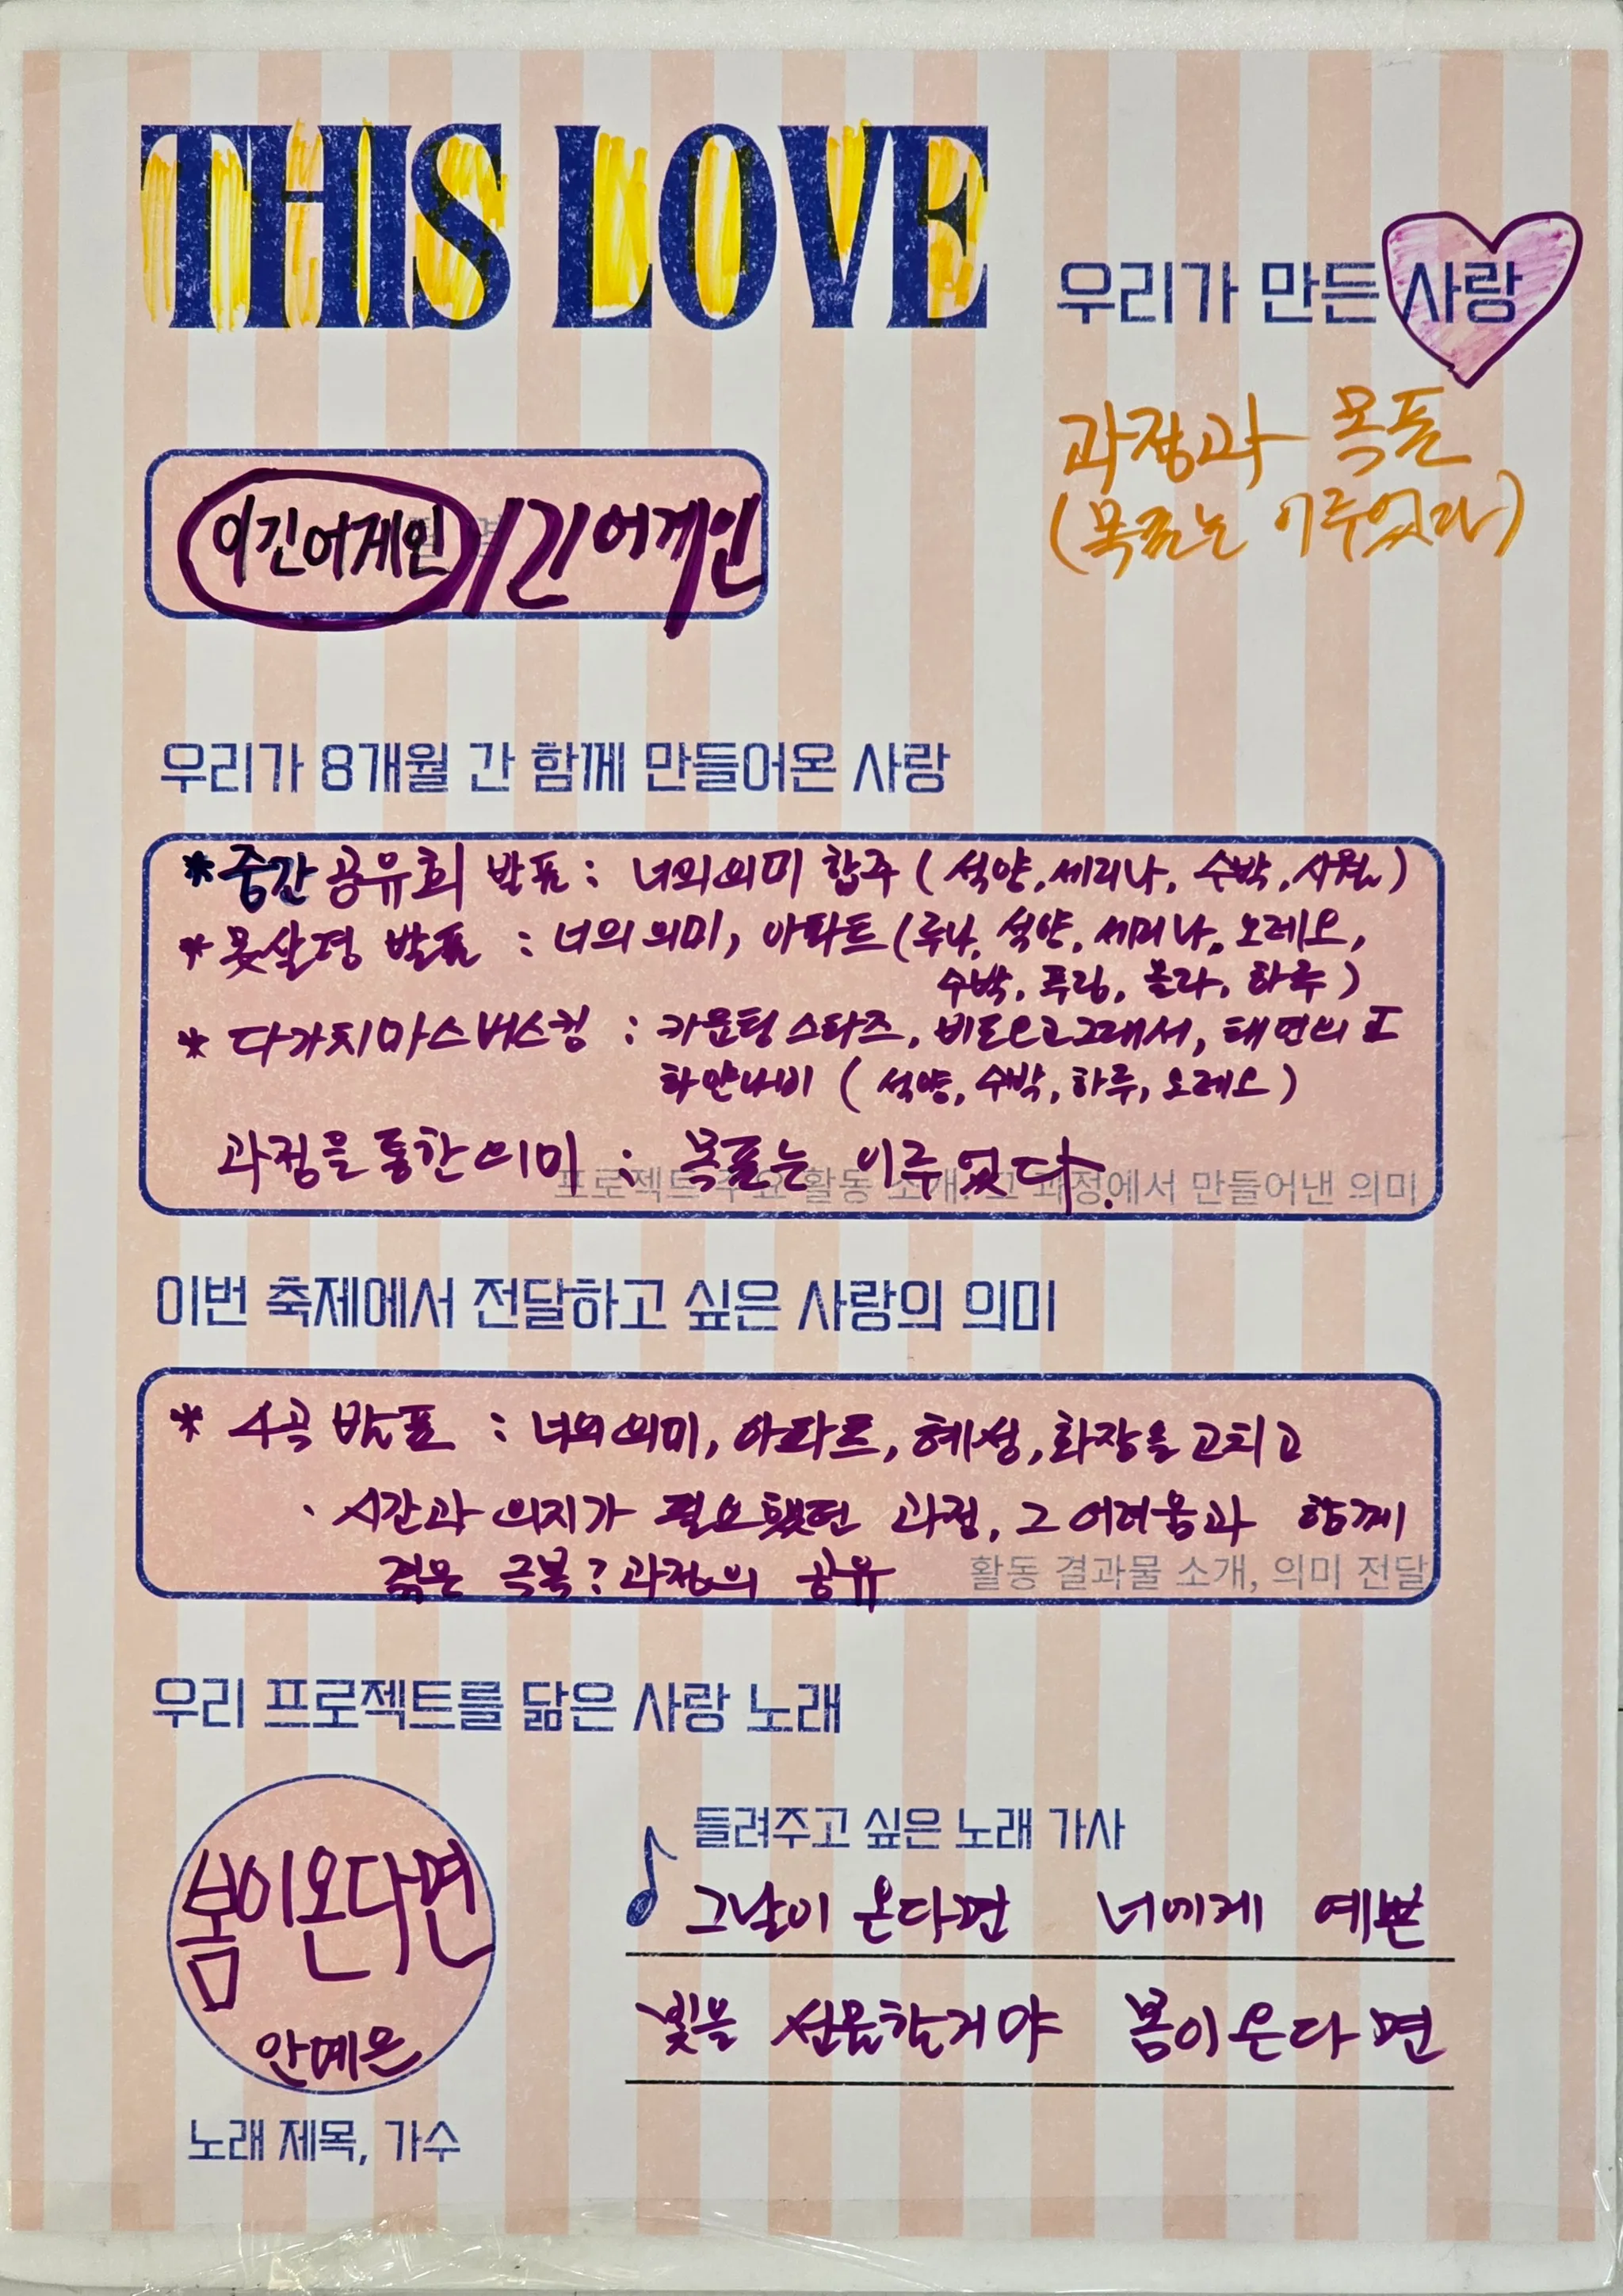 THIS LOVE
우리가 만든 사랑
과정과 목표
(목표는 이루었다)
이긴어게인 / 긴어게인
우리가 8개월 간 함께 만들어온 사랑
* 중간 공유회 발표 : 너의의미 합주 ( 석양, 세리나, 수박, 사월 )
* 못살경 발표 : 너의 의미, 아파트 (루나, 석양, 세리나, 오레오,
수박, 푸링, 몰라, 하루 )
* 다가치마스버스킹 : 카운팅스타즈, 비도오고그래서, 태연의 I
하얀나비 ( 석양, 수박, 하루, 오레오 )
과정을 통한 의미 : 목표는 이루었다.
프로젝트 주요 활동 소개, 그 과정에서 만들어낸 의미
이번 축제에서 전달하고 싶은 사랑의 의미
* 4곡 발표 : 너의 의미, 아파트, 혜성, 화장을 고치고
· 시간과 의지가 필요했던 과정, 그 어려움과 함께
겪은 극복? 과정의 공유
활동 결과물 소개, 의미 전달
우리 프로젝트를 닮은 사랑 노래
봄이온다면
안예은
노래 제목, 가수
들려주고 싶은 노래 가사
그날이 온다면 너에게 예쁜
빛을 선물할거야 봄이 온다면